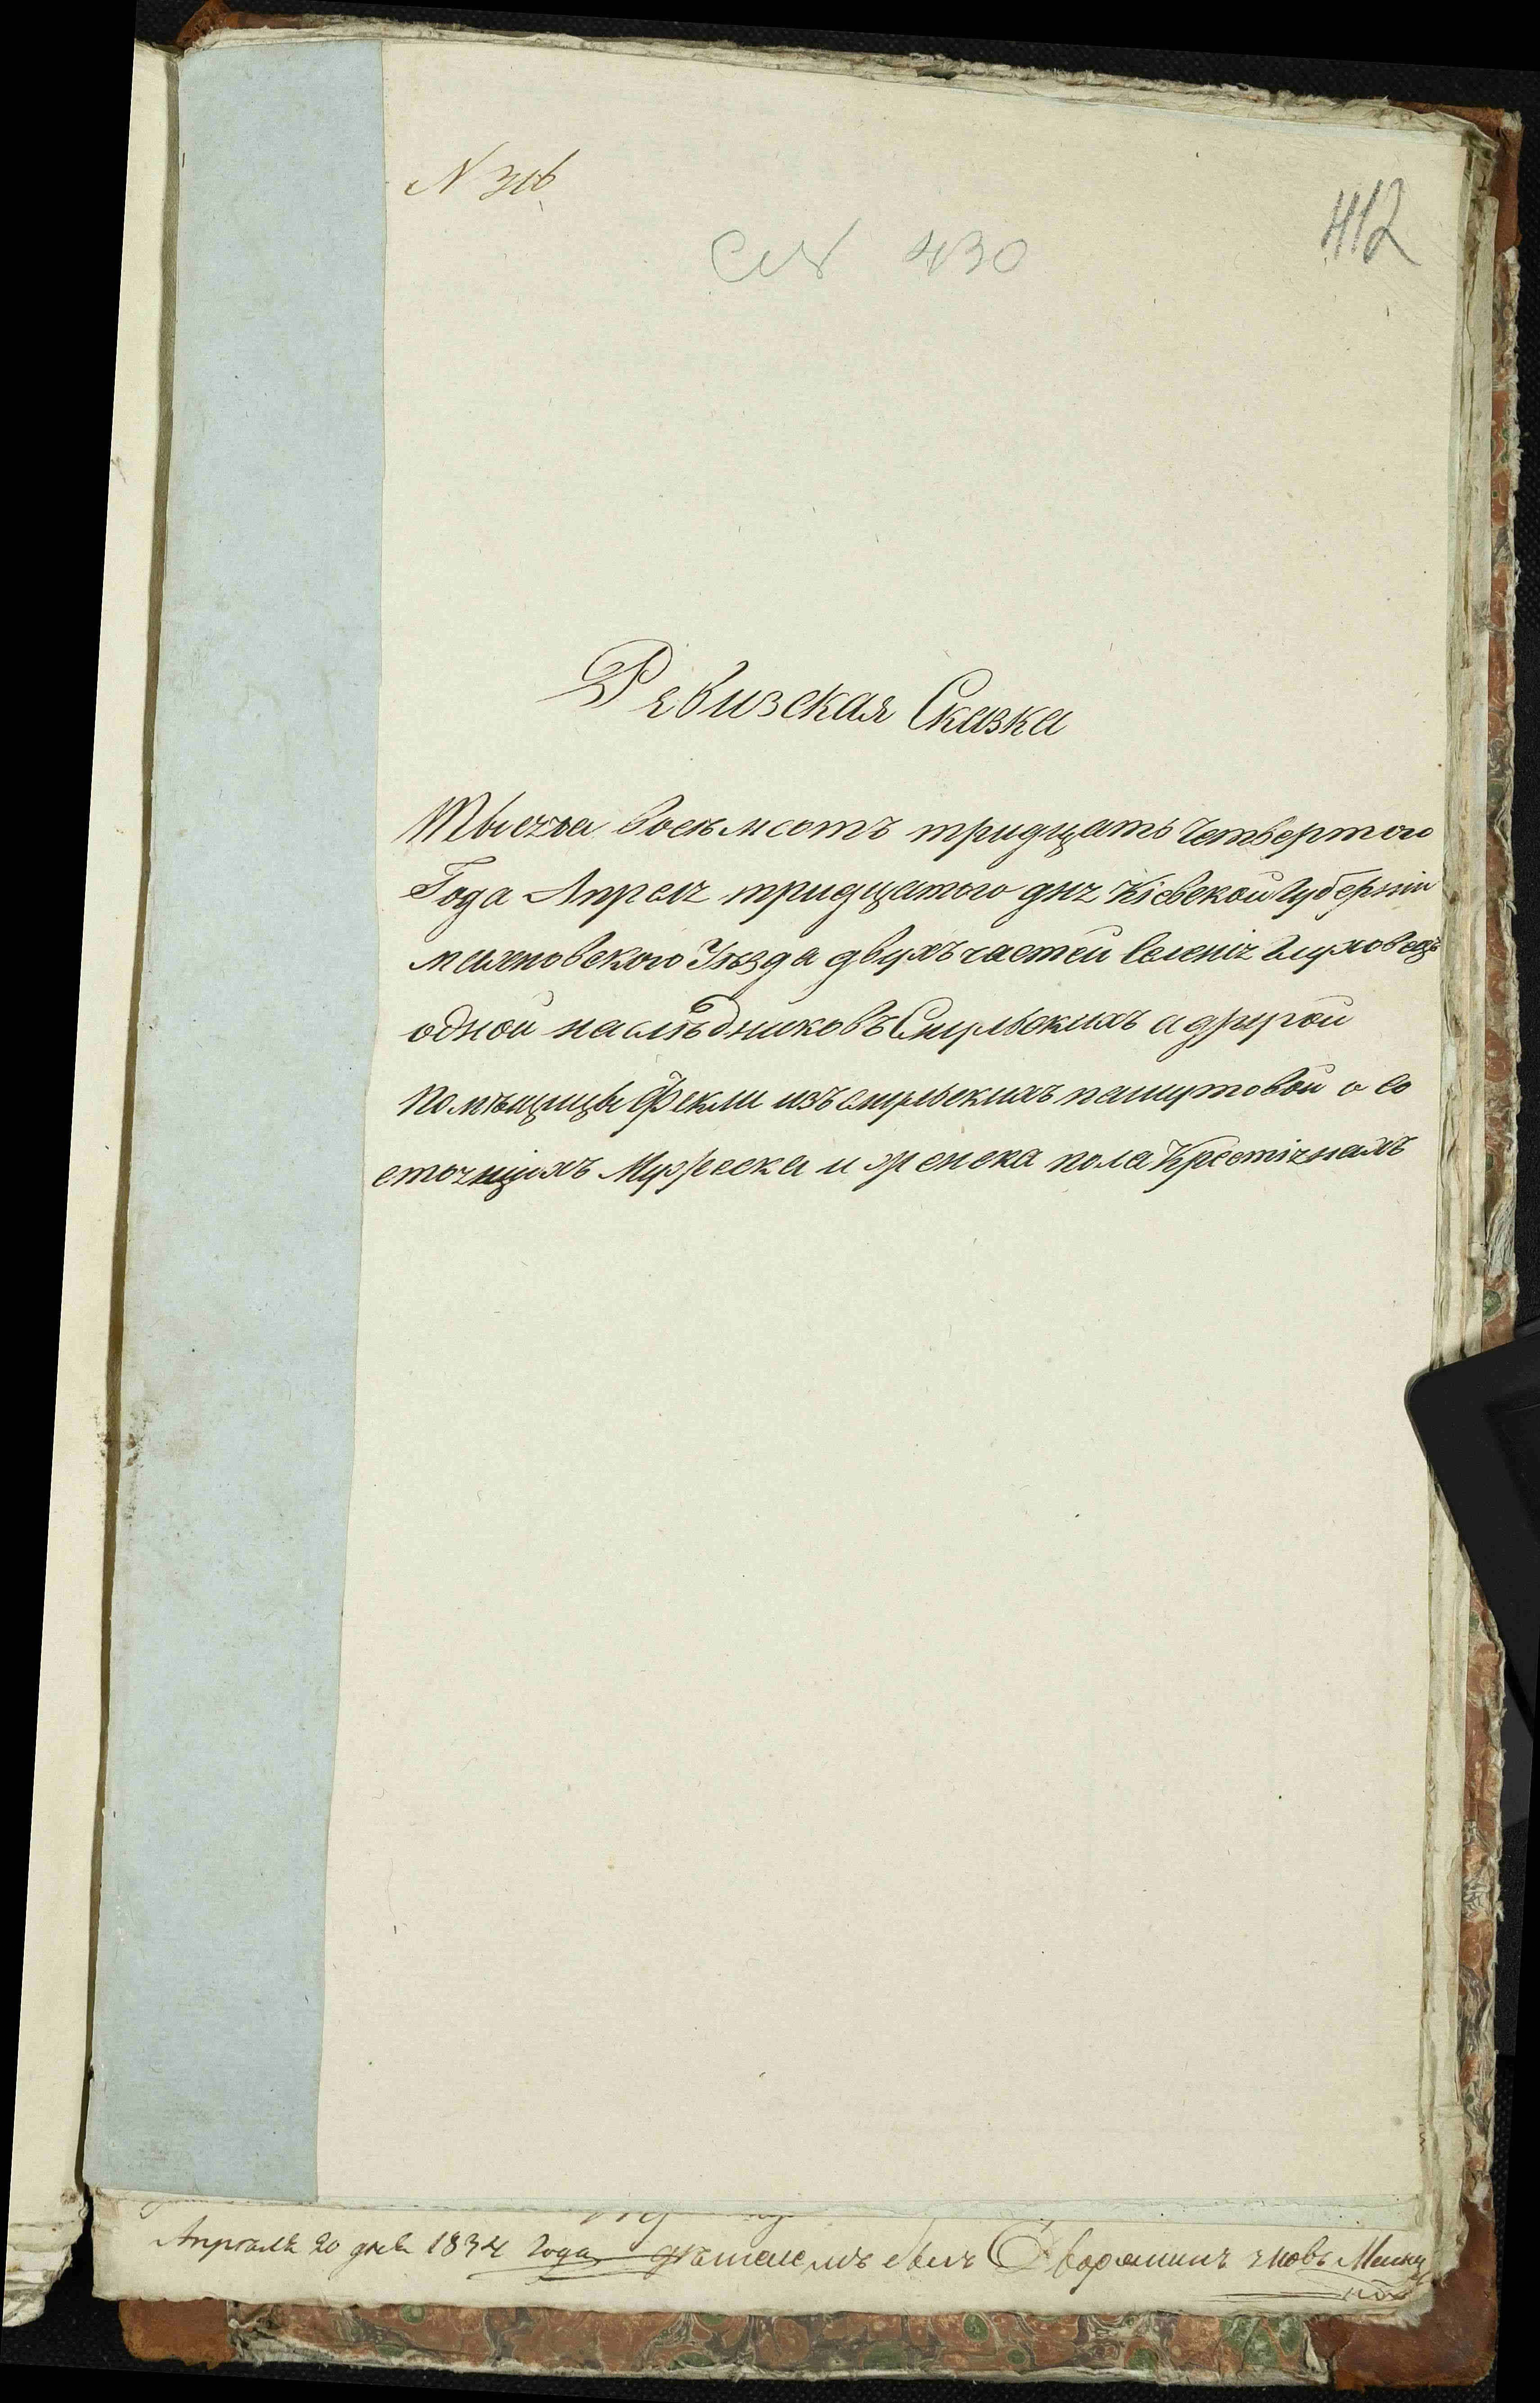 N 316
430
412
Ревизская Сказка
Тысяча восемьсотъ тридцать четвертого
Года Апреля тридцатого дня Кіевской Губерніи
махновского Уѣзда двухъ частей Селенія Глуховецъ
одной наслѣдниковъ Смульскихъ а другой
помѣщицы Феклы изъ смульскихъ пашутовой о со
стоящихъ Мужеска и женска пола Крестіянахъ
Апрѣля 20 дня 1834 года